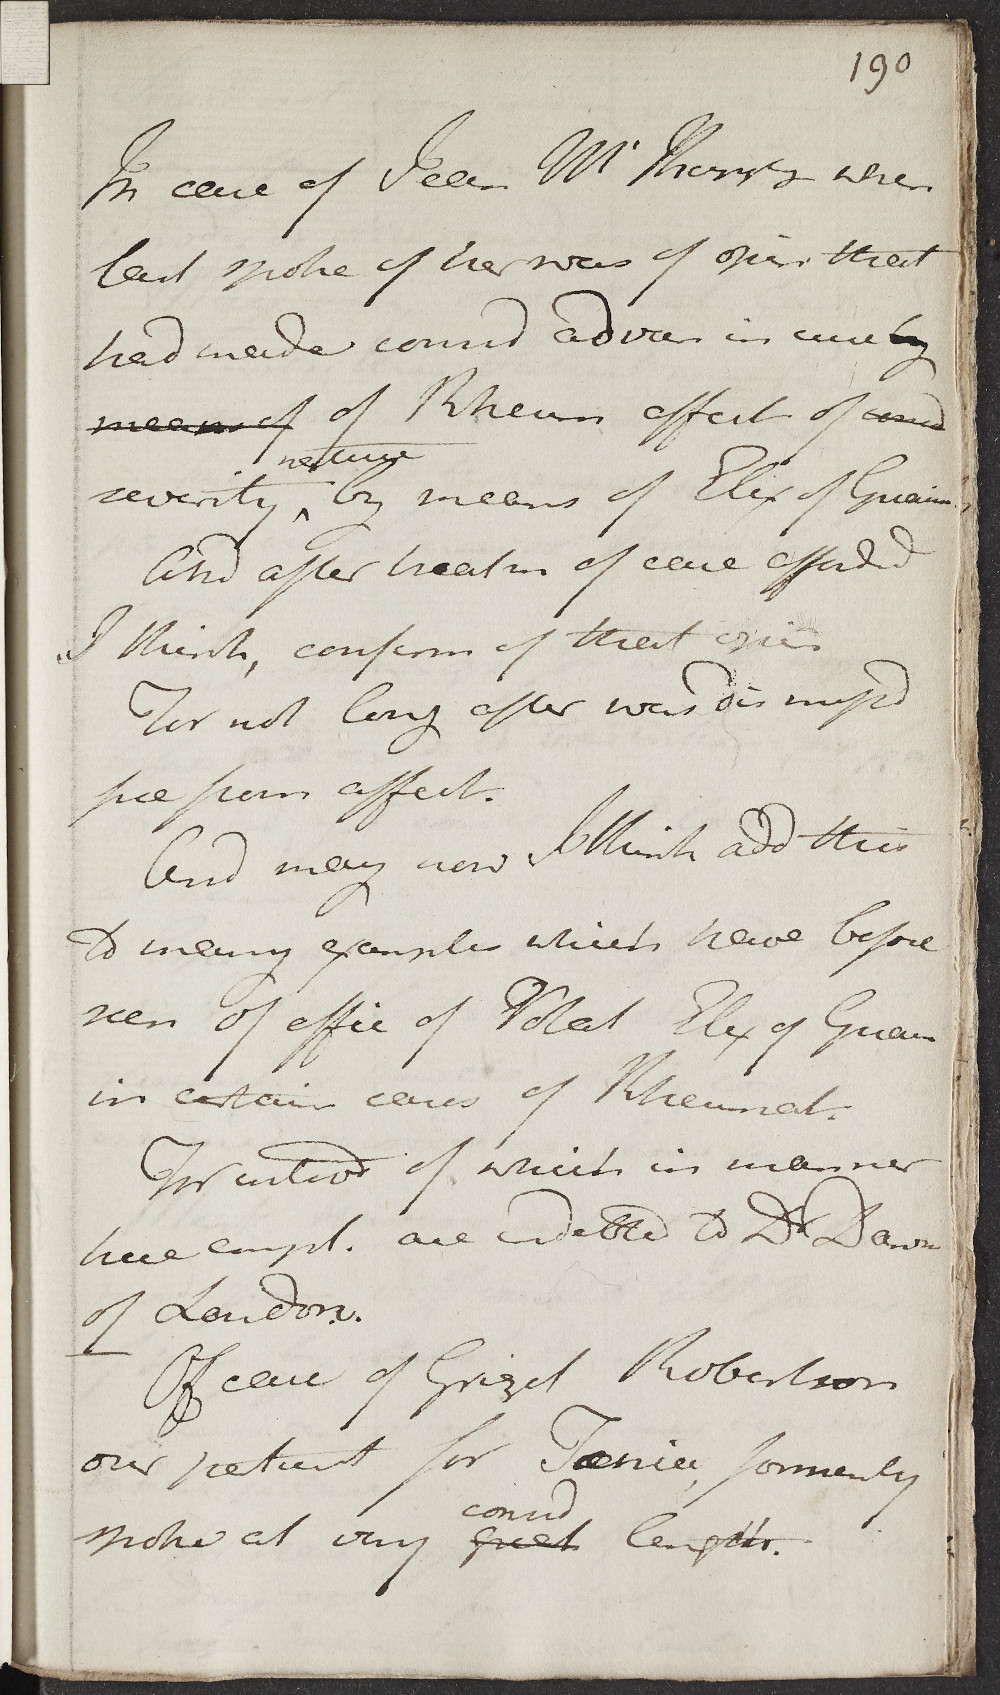 190
In case of Jean Mc when
last spoke of her was of opin that
had made consid advan in cure by
means of of Rheum affect of consd
nature
severity by means of Elix of Guaiac
And after treatm of case afforded
I think, confirm of that opin
For not long after was dismissd
free from affect.
And may now I think add this
to many examples which have before
seen of effic of Volat Elix of Guaiac
in certain cases of Rheumat.
For introd of which in manner
here empl. are indebted to Dr Dawson
of London.
Of case of Grizel Robertson
our patient for Tænia, formerly
consid
spoke at very great length.